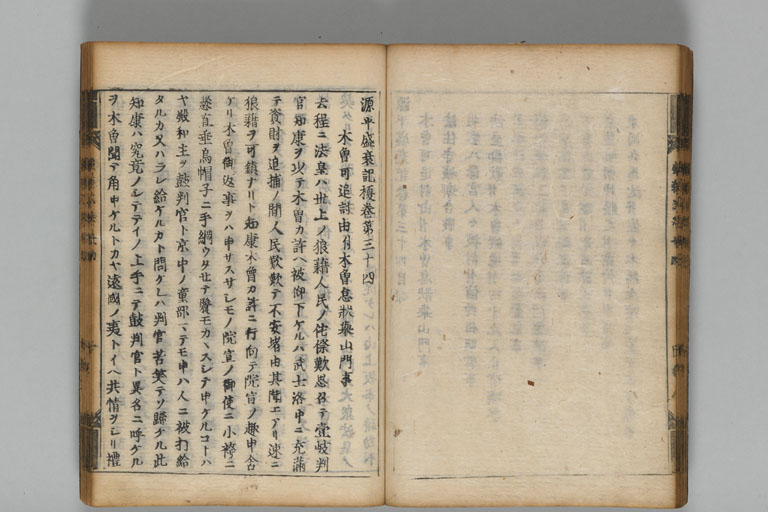 源平盛衰記摸巻第三十四
木曽可追討由付木曽怠状挙山門事
去程ニ法皇ハ世上ノ狼藉人民ノ侘傺歎思召テ壹岐判
官知康ヲ以テ木曽カ許ヘ被仰下ケルハ武士洛中ニ充満
テ資財ヲ追捕ノ間人民歎歎テ不安堵由其聞エアリ速ニ
狼藉ヲ可鎮ナリト知康木曽カ許ニ行向テ院宣ノ趣申含
ケリ木曽御返事ヲハ申サスサレモノ院宣ノ御使ニ小袴ニ
懸直垂烏帽子ニ手綱ウタセテ鬢モカヽスシテ申ケルコトハ
ヤ殿和主ヲ鼓判官ト京中ノ童部マテモ申ハ人ニ被打給
タルカ又ハラレ給ケルカト問ケレハ判官苦笑テソ歸ケル此
知康ハ究竟ノシテテイノ上手ニテ鼓判官ト異名ニ呼ケル
ヲ木曽聞テ角申ケルトカヤ遠國ノ夷トイヘ共情ヲシリ禮